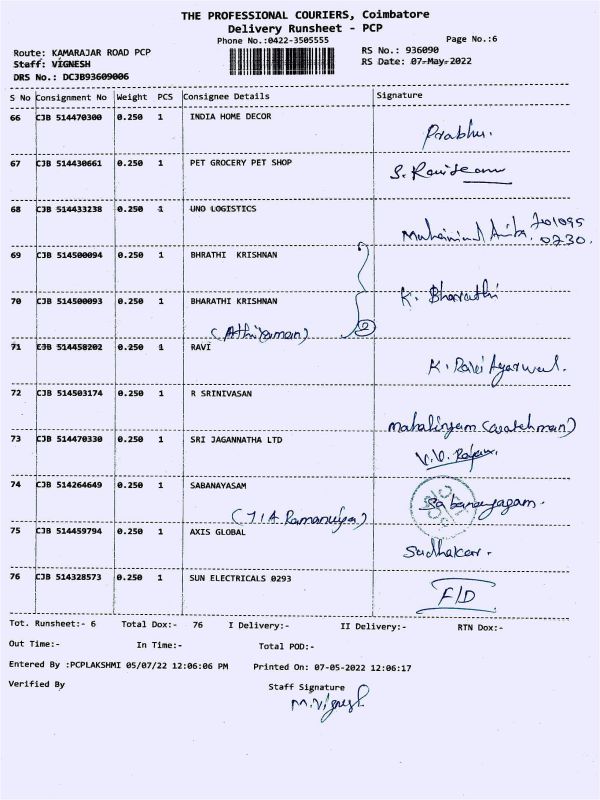 THE PROFESSIONAL COURIERS, Coimbatore
Delivery Runsheet - PCP
Phone No.:0422-3505555
Page No.:6
Route: KAMARAJAR ROAD PCP
RS No.: 936090
Staff: VIGNESH
RS Date: 07-May-2022
DRS No.: DC3B93609006
S No Consignment No Weight PCS Consignee Details Signature
66 CJB 514470300 0.250 1 INDIA HOME DECOR
Prabhu.
67 CJB 514430661 0.250 1 PET GROCERY PET SHOP
S.
68 CJB 514433238 0.250 1 UNO LOGISTICS
0730.
69 CJB 514500094 0.250 1 BHRATHI KRISHNAN
70 CJB 514500093 0.250 1 BHARATHI KRISHNAN
K. Bharathi
2
71 CJB 514458202 0.250 1 RAVI
K. Ravi Agarwal.
72 CJB 514503174 0.250 1 R SRINIVASAN
Mahalingam (watchman)
73 CJB 514470330 0.250 1 SRI JAGANNATHA LTD
74 CJB 514264649 0.250 1 SABANAYASAM
Sabanayagam.
75 CJB 514459794 0.250 1 AXIS GLOBAL
Sudhakar.
76 CJB 514328573 0.250 1 SUN ELECTRICALS 0293
F/D
Tot. Runsheet:- 6 Total Dox:- 76 I Delivery:- II Delivery:- RTN Dox:-
Out Time:- In Time:- Total POD:-
Entered By :PCPLAKSHMI 05/07/22 12:06:06 PM Printed On: 07-05-2022 12:06:17
Verified By Staff Signature
M. Vignesh